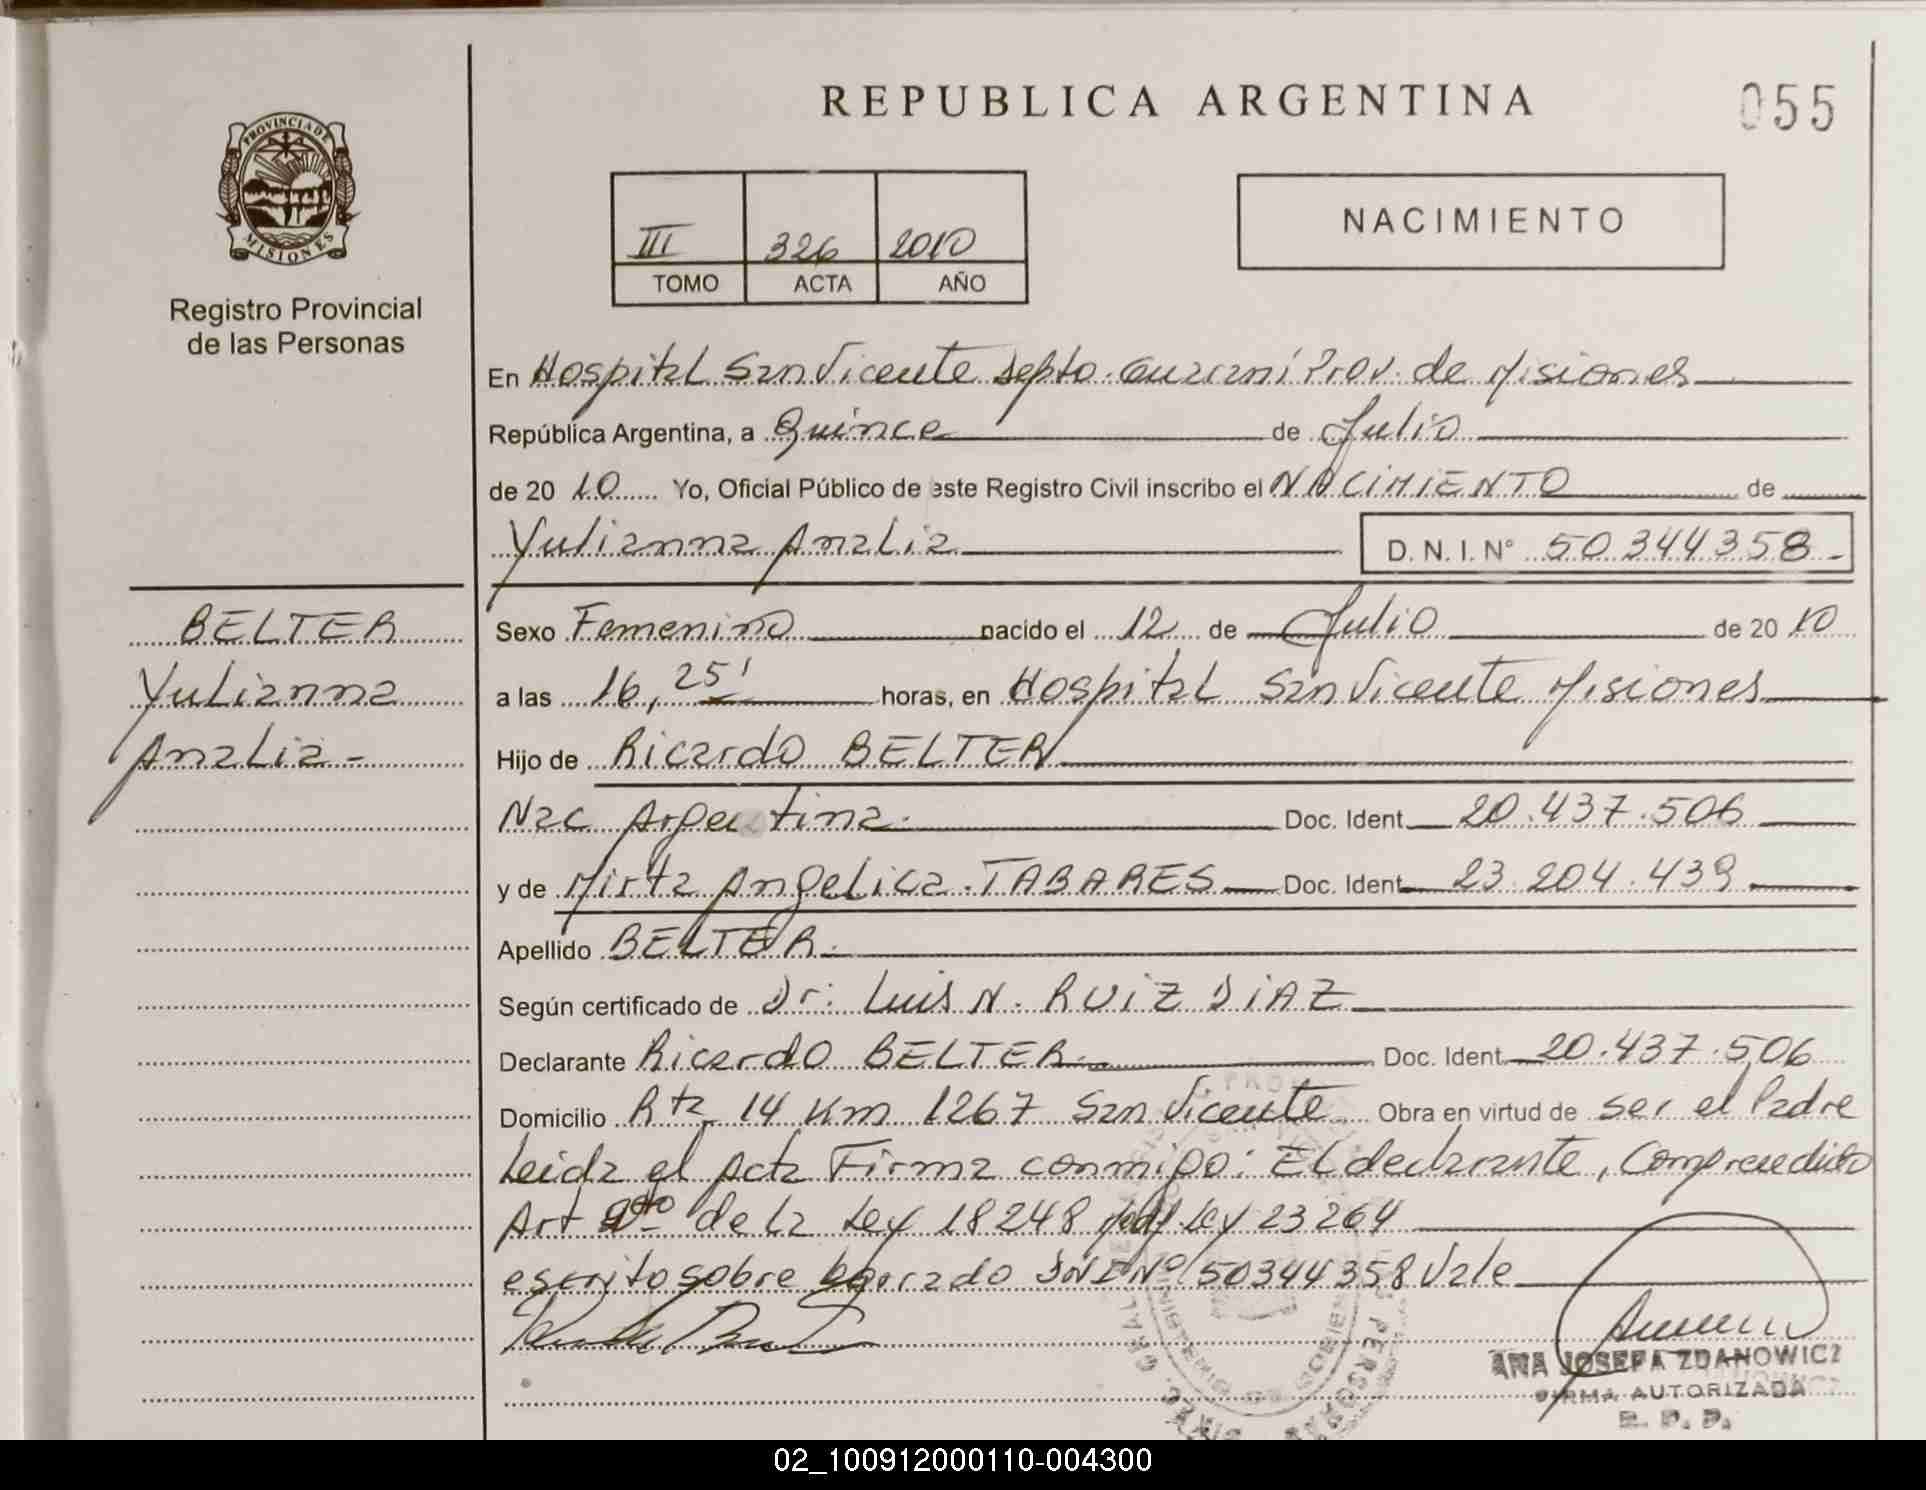 REPUBLICA ARGENTINA
055
PROVINCIA DE
MISIONES
Registro Provincial
de las Personas
III 326 2010
TOMO ACTA AÑO
NACIMIENTO
En Hospital San Vicente Depto. Guaraní Prov. de Misiones
República Argentina, a Quince de Julio
de 2010 Yo, Oficial Público de este Registro Civil inscribo el NACIMIENTO de
Yulianna Analia D.N.I.N° 50344358-
BELTER
Yulianna
Analia-
Sexo Femenino nacido el 12 de Julio de 2010
a las 16,25' horas, en Hospital San Vicente Misiones
Hijo de Ricardo BELTER
Nac Argentina. Doc. Ident 20.437.506
y de Mirta Angelica. TABARES Doc. Ident 23.204.439
Apellido BELTER.
Según certificado de Dr: Luis N. RUIZ DIAZ
Declarante Ricardo BELTER. Doc. Ident 20.437.506
Domicilio Rta 14 Km 1267 San Vicente Obra en virtud de ser el Padre
Leida el Acta Firma conmigo: El declarante, Comprendido
Art de la Ley 18248 Mod. Ley 23264
escrito sobre borrado DNI N° 50344358 Vale
ANA JOSEFA ZDANOWICZ
FIRMA AUTORIZADA
R. P. P.
02_100912000110-004300